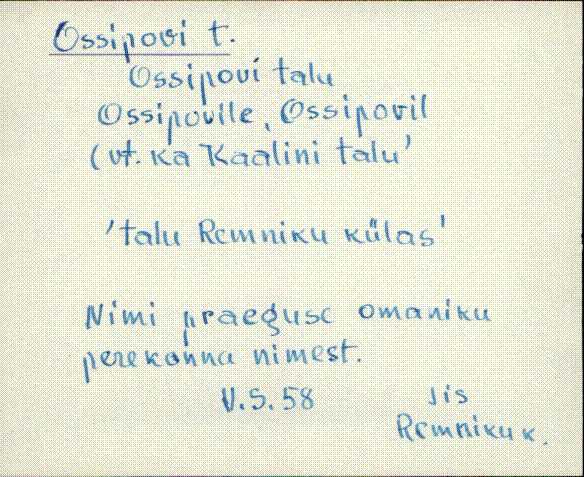 Ossipovi t.
Ossipovi talu
Ossipovile, Ossipovil
(vt. ka Kaalini talu'
'talu Remniku külas'
Nimi praeguse omaniku
perekonna nimest.
V.S. 58 Jis
Remniku k.